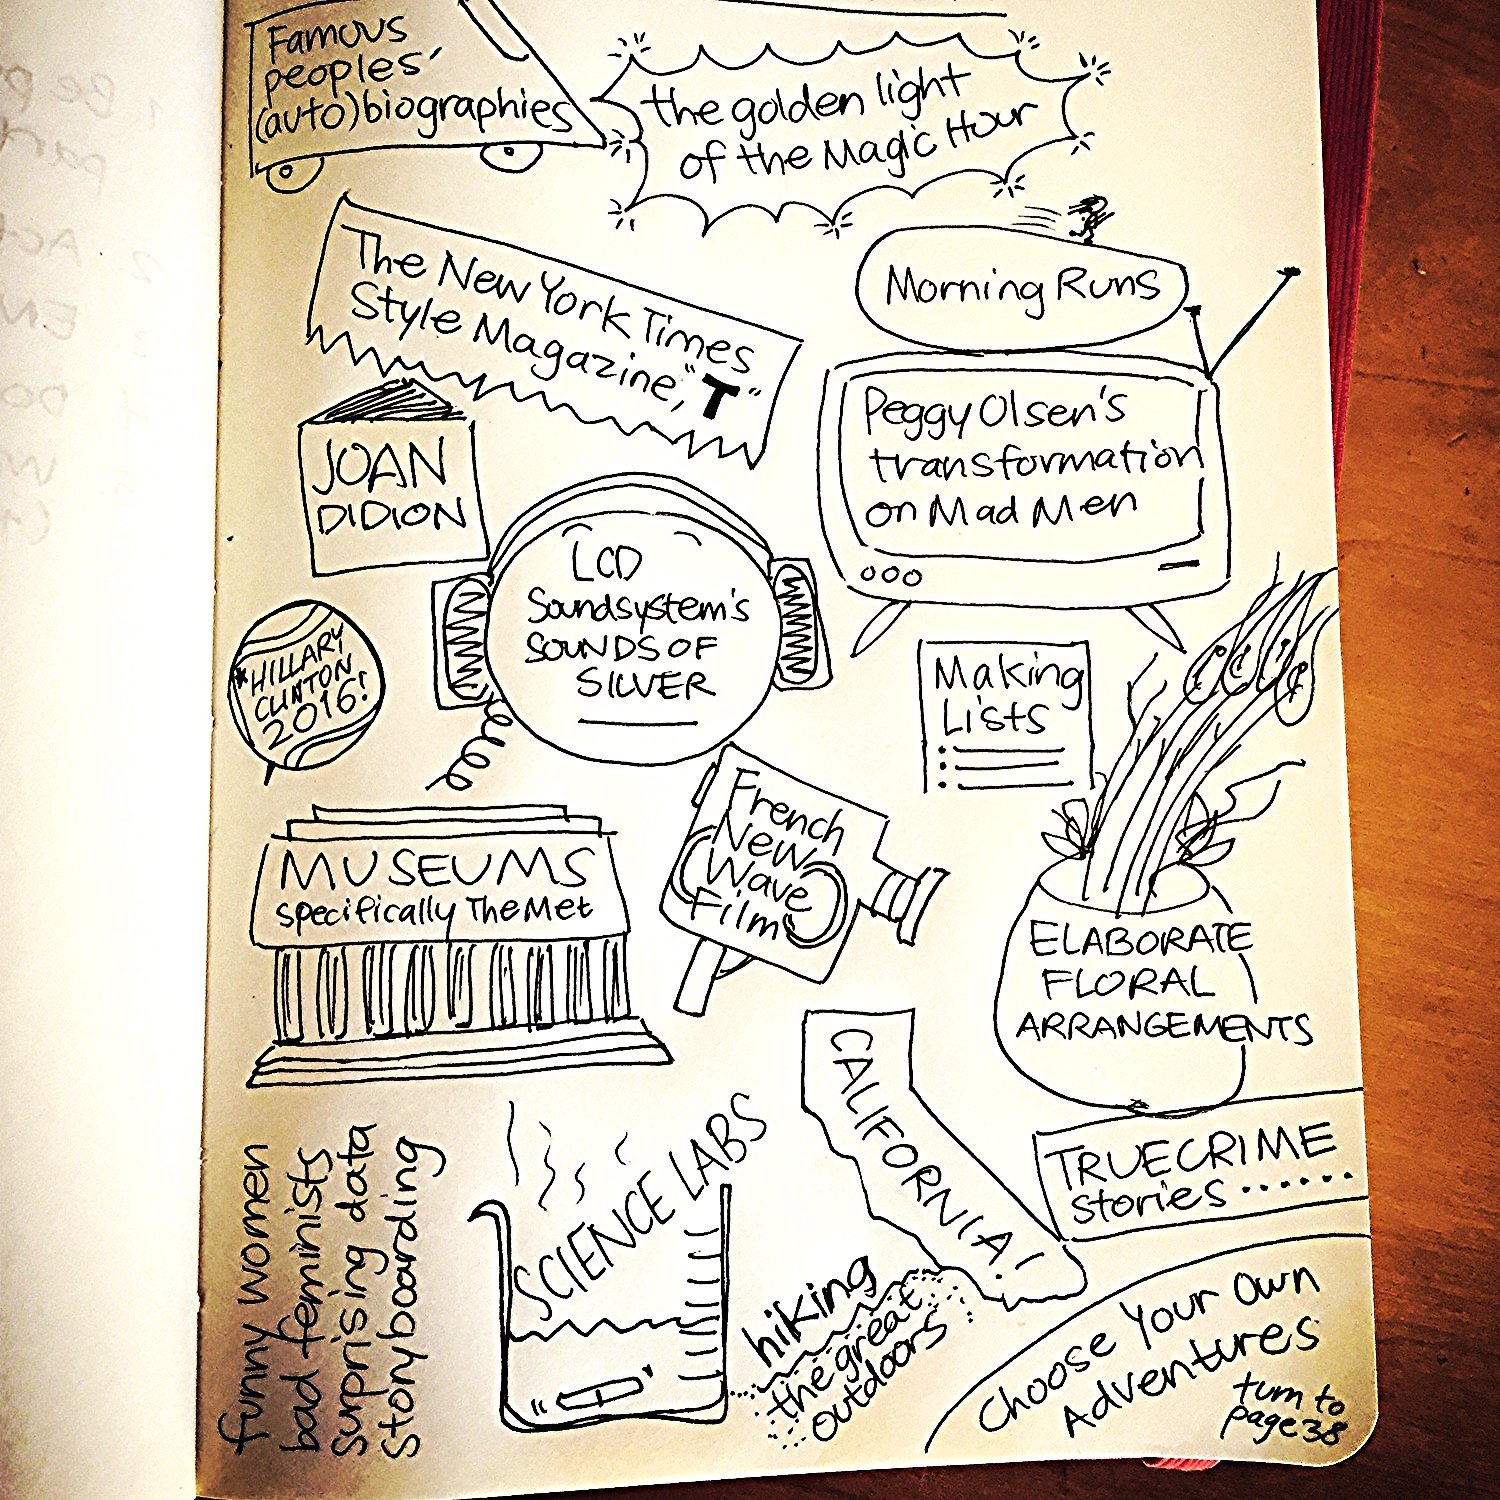 Famous
peoples'
(auto)biographies
the golden light
of the Magic Hour
The New York Times
Style Magazine, "T"
Morning Runs
JOAN
DIDION
Peggy Olsen's
transformation
on Mad Men
LCD
Soundsystem's
SOUNDS OF
SILVER
HILLARY
CLINTON
2016!
Making
Lists
French
New
Wave
Film
MUSEUMS
specifically The Met
ELABORATE
FLORAL
ARRANGEMENTS
CALIFORNIA!
SCIENCE LABS
TRUE CRIME
stories......
funny women
bad feminists
surprising data
storyboarding
hiking
the great
outdoors
Choose Your Own
Adventures
turn to
page 38